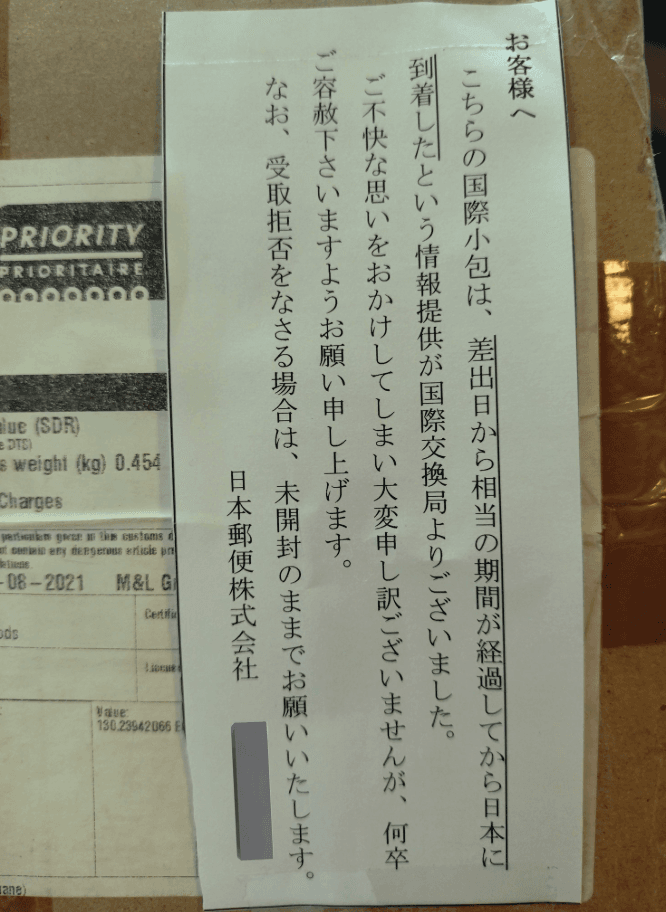 お客様へ
こちらの国際小包は、差出日から相当の期間が経過してから日本に
到着したという情報提供が国際交換局よりございました。
ご不快な思いをおかけしてしまい大変申し訳ございませんが、何卒
ご容赦下さいますようお願い申し上げます。
なお、受取拒否をなさる場合は、未開封のままでお願いいたします。
日本郵便株式会社
PRIORITY
PRIORITAIRE
alue (SDR)
e DTS)
s weight (kg) 0.454
Charges
particulars given in this customs
not contain any dangerous article
-08-2021 M&L G
Certific
ods
Value:
130.23942066 E